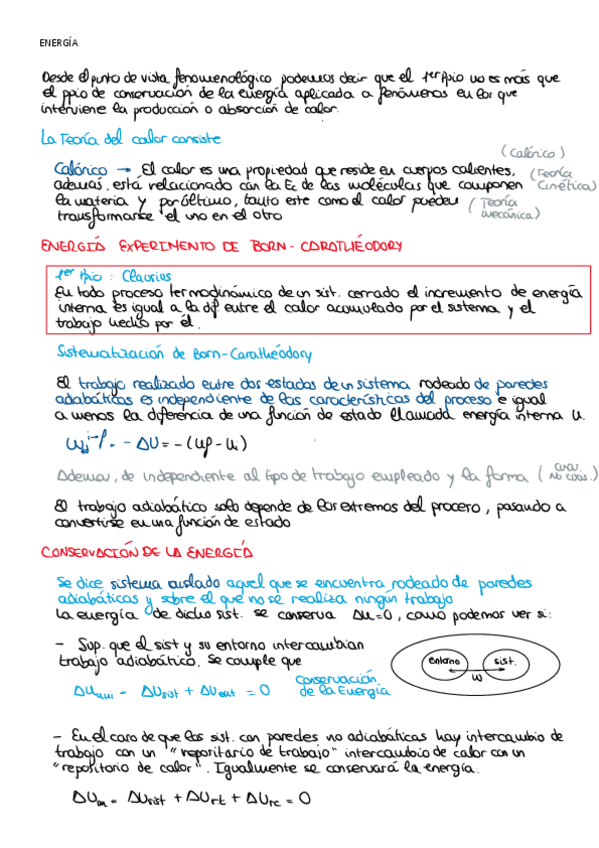 ENERGÍA
Desde el punto de vista fenomenológico podemos decir que el 1er Ppio no es más que
el ppio de conservación de la energía aplicada a fenómenos en los que
interviene la producción o absorción de calor.
La Teoría del calor consiste
(Calórico)
Calórico → El calor es una propiedad que reside en cuerpos calientes, (Teoría
además, está relacionado con la Ec de las moléculas que componen Cinética)
la materia y por último, tanto este como el calor pueden (Teoría
transformarse el uno en el otro mecánica)
ENERGÍA EXPERIMENTO DE BORN-CARATHÉODORY
1er Ppio: Clausius
En todo proceso termodinámico de un sist. cerrado el incremento de energía
interna es igual a la dif entre el calor acumulado por el sistema y el
trabajo hecho por él.
Sistematización de Born-Carathéodory
El trabajo realizado entre dos estados de un sistema rodeado de paredes
adiabáticas es independiente de las características del proceso e igual
a menos la diferencia de una función de estado llamada energía interna U.
= - ΔU = - (Uf - Ui)
Además, de independiente al tipo de trabajo empleado y la forma (cuas.
no cuas.)
El trabajo adiabático solo depende de los extremos del proceso, pasando a
convertirse en una función de estado
CONSERVACIÓN DE LA ENERGÍA
Se dice sistema aislado aquel que se encuentra rodeado de paredes
adiabáticas y sobre el que no se realiza ningún trabajo
La energía de dicho sist. se conserva ΔU=0, como podemos ver si:
- Sup. que el sist y su entorno intercambian
trabajo adiabático. Se cumple que
entorno sist.
W
ΔUuni - ΔUsist + ΔUent = 0 Conservación
de la Energía
- En el caso de que los sist. con paredes no adiabáticas hay intercambio de
trabajo con un "repositario de trabajo" intercambio de calor con un
"repositorio de calor". Igualmente se conservará la energía.
ΔUsist + ΔUrt + ΔUrc = 0